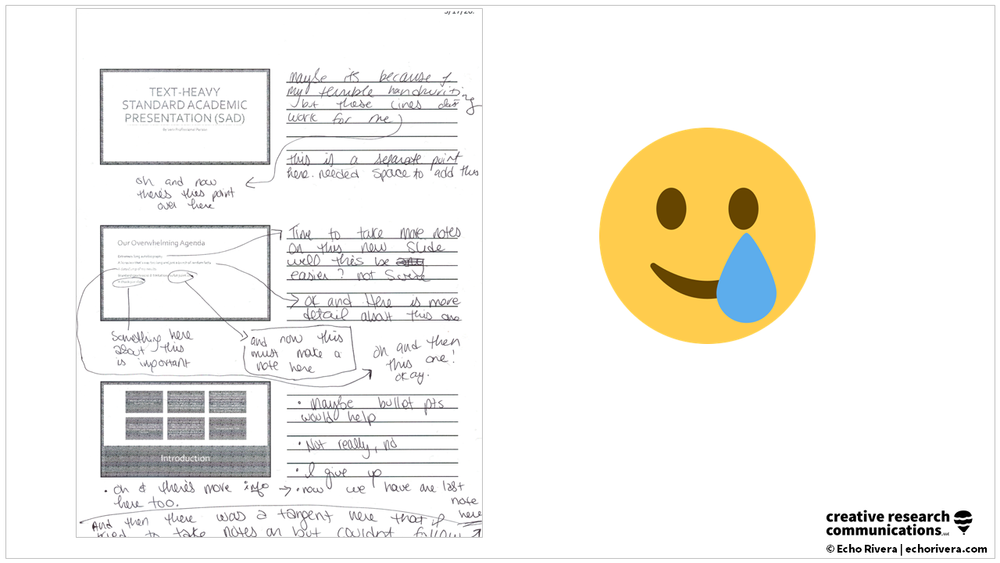 3/17/20
TEXT-HEAVY
STANDARD ACADEMIC
PRESENTATION (SAD)
Maybe its because of
my terrible handwriting
, but these lines dont
work for me)
this is a separate point
here. needed space to add this
oh and now
there's this point
over here
Our Overwhelming Agenda
Time to take more notes
on this new slide
will this be
easier? not sure
ok and Here is more
detail about this one
Something here
about this
is important
and now this
must make a
note here
oh and then
this one!
okay.
Introduction
• Maybe bullet pts
would help
• Not really, no
• I give up
• Oh & there's more info
here too.
→ • now we have one last
note
here
And then there was a tangent here that I
tried to take notes on but couldn't follow
creative research
communications
© Echo Rivera | echorivera.com